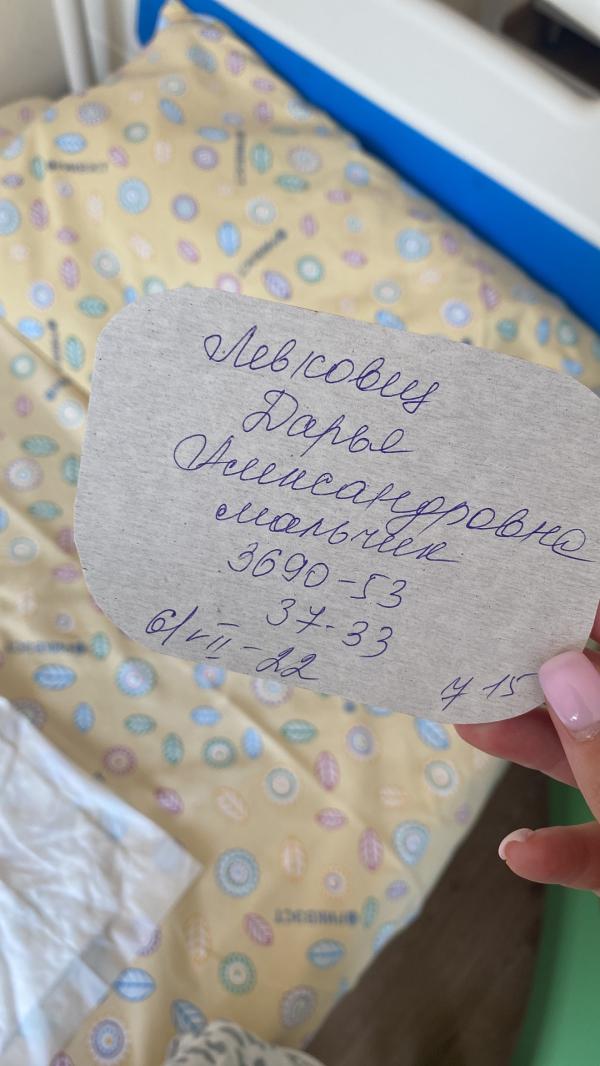 Левковец
Дарья
Александровна
мальчик
3690-53
37-33
6/VII-22
7 15